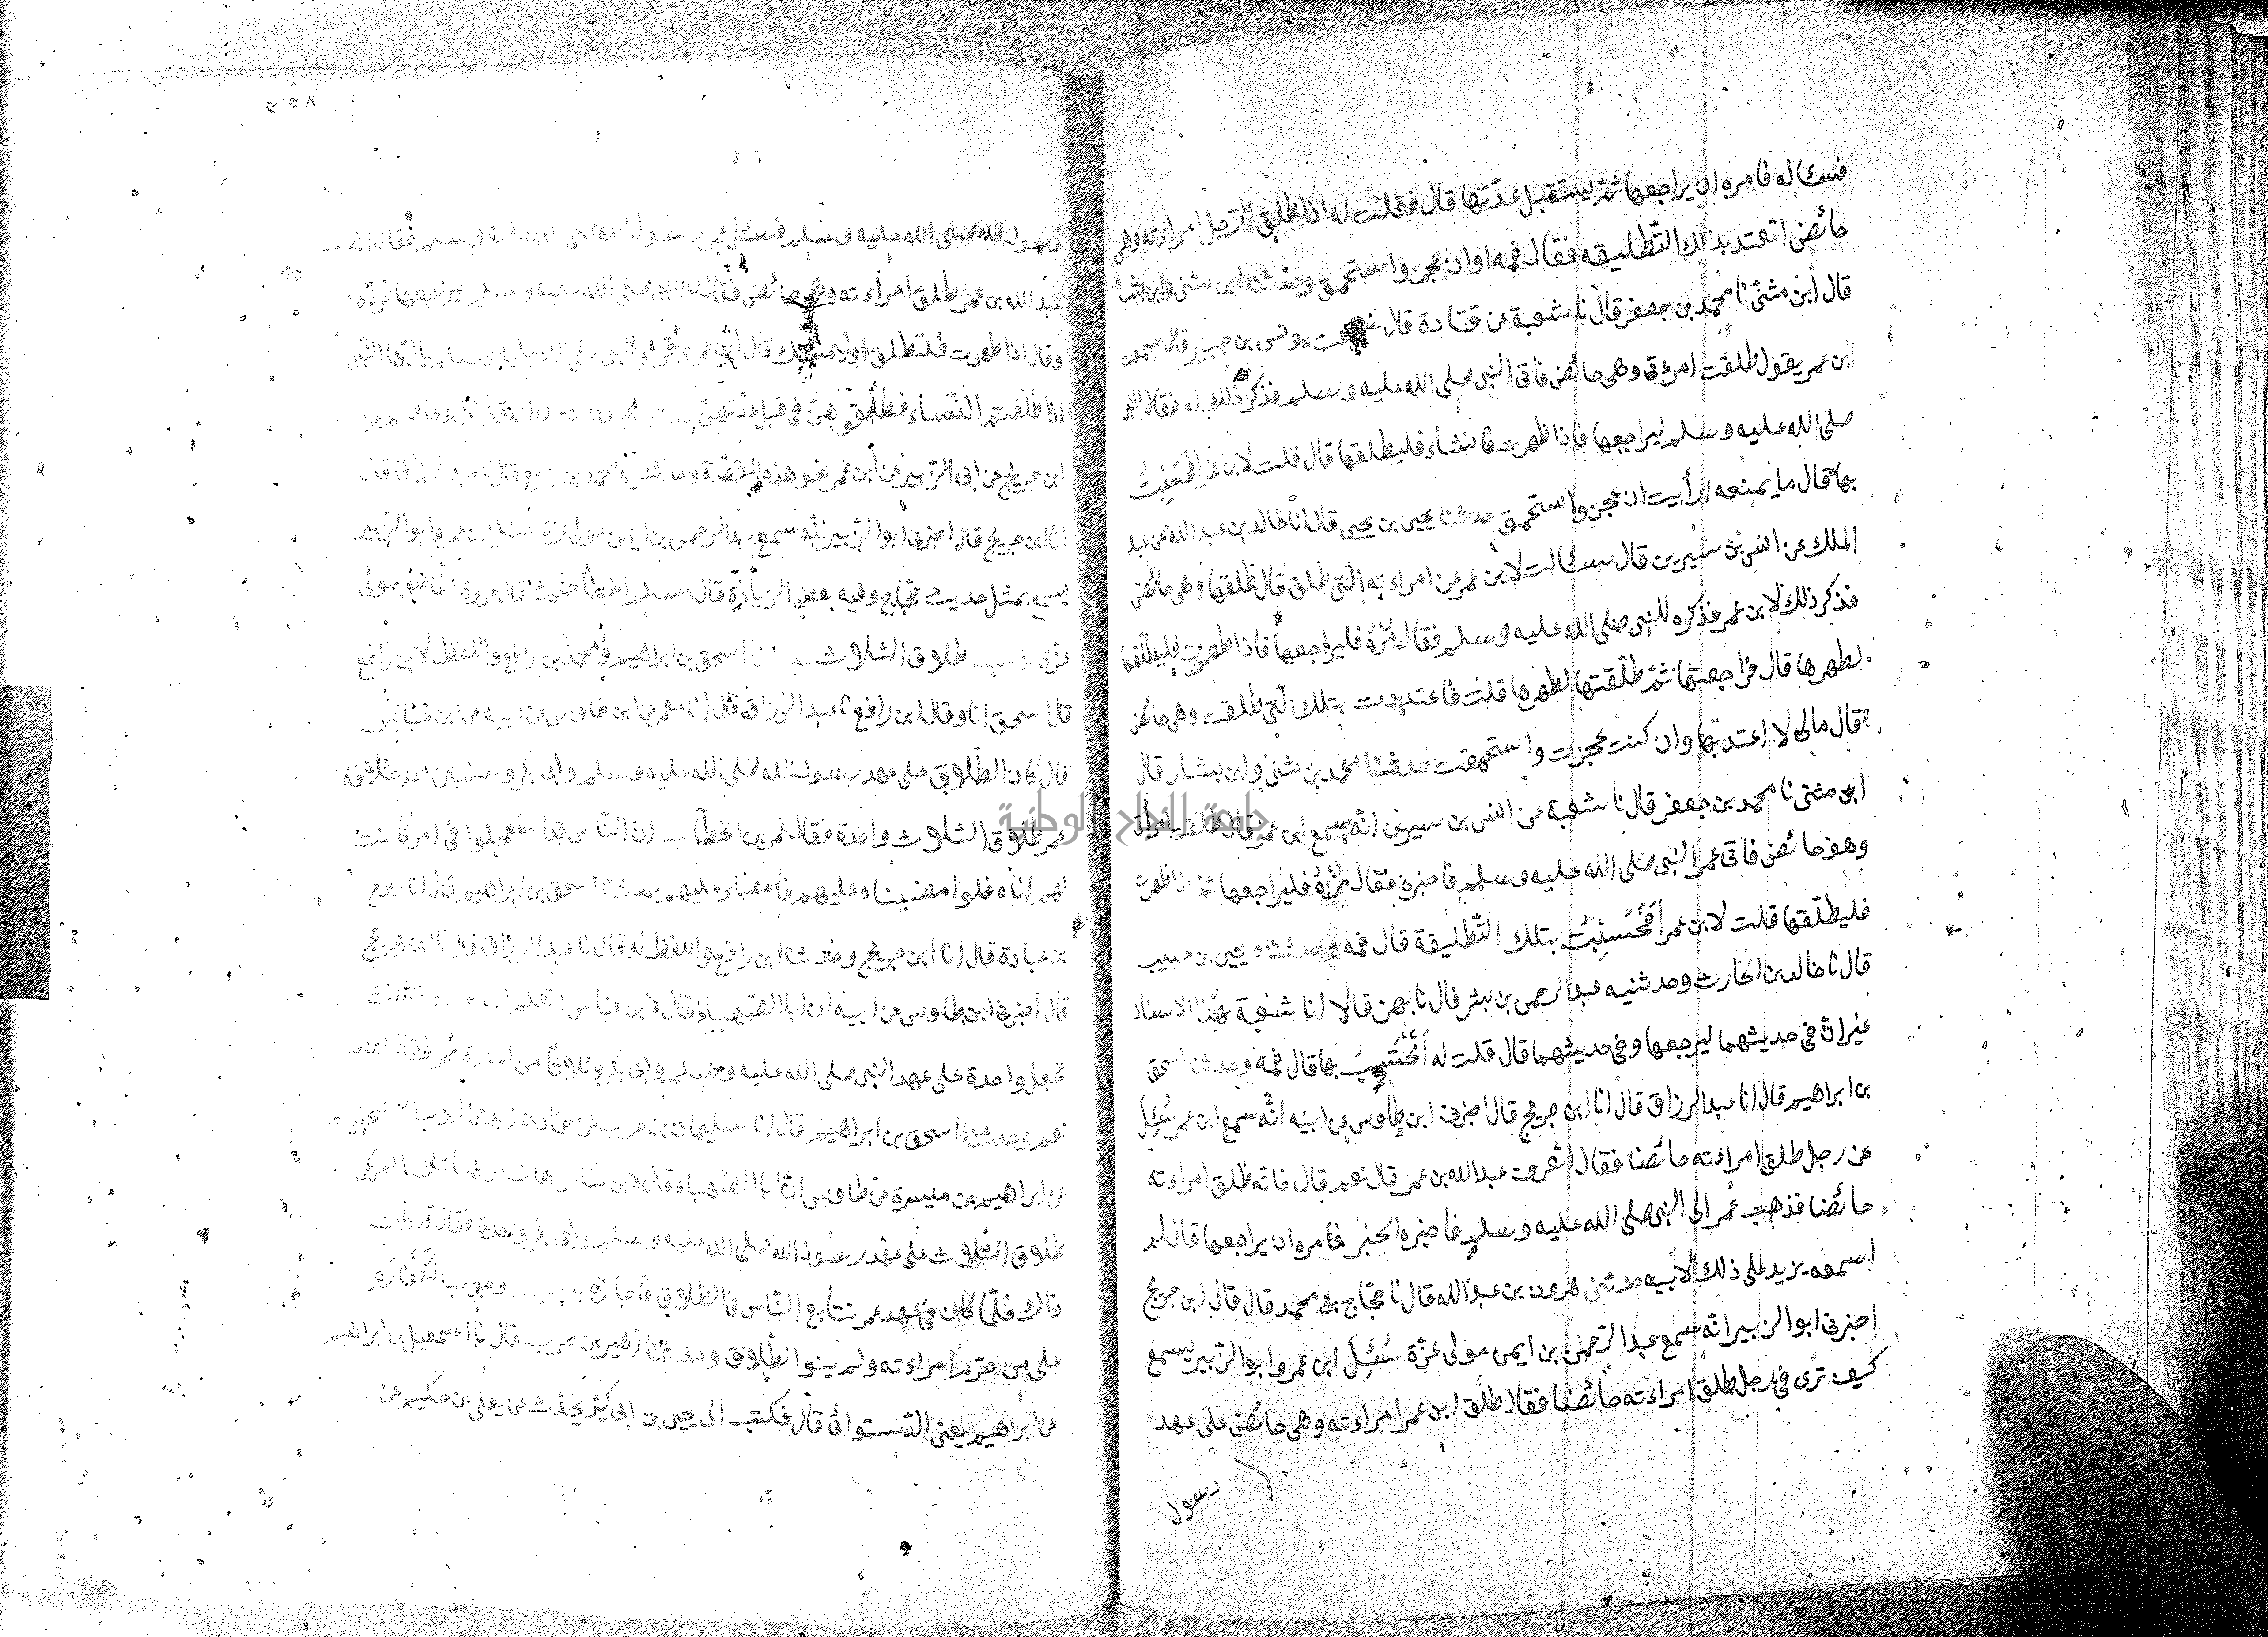 فسئاله فامره ان يراجعها ثمّ يستقبل عدّتها قال فقلت له اذا طلق الرّجل امراءته وهى
حائض اتعتد بذلك التّطليقه فقال فمه اوان عجز واستحمق وحدثنا ابن مثنى وابن بشار
قال ابن مثنّى نا محمد بن جعفر قال نا شعبة عن قتادة قال سمعت يونس بن جبير قال سمعت
ابن عمر يقول طلقت امرءتى وهى حائض فاتى النبى صلى الله عليه وسلم فذكر ذلك له فقال النبى
صلى الله عليه وسلم ليراجعها فاذا طهرت فان شاء فليطلقها قال قلت لابن عمر أفَحَسِبْتَ
بها قال ما يمنعه ارأيت ان عجز واستحمق حدثنا يحيى بن يحيى قال انا خالد بن عبد الله عن عبد
الملك عن انس بن سيرين قال سئالت لابن عمر عن امراءته التى طلق قال طلقتها وهى حائض
فذكر ذلك لابن عمر فذكره للنبى صلى الله عليه وسلم فقال مُرْهُ فليراجعها فاذا طهرت فليطلّقها
لطهرها قال فراجعتها ثمّ طلّقتها لطهرها قلت فاعتددت بتلك الّتى طلقت وهى حائض
قال مالى لا اعتد بها وان كنت عجزت واستحمقت حدثنا محمد بن مثنى وابن بشار قال
ابن مثنى نا محمد بن جعفر قال نا شعبة عن انس بن سيرين انّه سمع ابن عمر قال طلقت امرأتى
وهو حائض فاتى عمر النّبى صلى الله عليه وسلم فاخبره فقال مُرْهُ فليراجعها ثمّ اذا طهرت
فليطلّقها قلت لابن عمر أفَحَسَبْتَ بتلك التّطليقة قال فمه وحدثناه يحيى بن حبيب
قال نا خالد بن الحارث وحدثنيه عبد الرحمن بن بشر قال نا بهز قالا نا شعبة بهذا الاسناد
غير انّ فى حديثهما ليرجعها وفى حديثهما قال قلت له أتَحْتَسِبُ بها قال فمه وحدثنا اسحق
بن ابراهيم قال انا عبد الرزاق قال انا ابن جريج قال اخبرنى ابن طاوس عن ابيه انّه سمع ابن عمر سُئِلَ
عن رجل طلق امراءته حائضا فقال اتعرف عبد الله بن عمر قال نعم قال فانّه طلق امراءته
حائضا فذهب عمر الى النبى صلى الله عليه وسلم فاخبره الخبر فامره ان يراجعها قال لم
اسمعه يزيد على ذلك لابيه حدثنى هرون بن عبد الله قال نا حجّاج بن محمد قال قال ابن جريج
اخبرنى ابو الزبير انّه سمع عبد الرّحمن بن ايمن مولى عزّة سُئِلَ ابن عمر وابو الزّبير يسمع
كيف ترى فى رجل طلق امراءته حائضا فقال طلق ابن عمر امراءته وهى حائض على عهد
رسول
رسول الله صلى الله عليه وسلم فسئل عمر رسول الله صلى الله عليه وسلم فقال انه
عبد الله بن عمر طلق امراءته وهى حائض فقال له النبى صلى الله عليه وسلم ليراجعها فردّها
وقال اذا طهرت فلتطلق او ليمسك قال ابن عمر وقرأ النبى صلى الله عليه وسلم ياايّها النّبى
اذا طلّقتم النّساء فطلّقوهنّ فى قبل عدّتهنّ حدثنى هرون بن عبد الله قال نا ابو عاصم عن
ابن جريج عن ابى الزّبير عن ابن عمر نحو هذه القصّة وحدثنيه محمد بن رافع قال نا عبد الرزاق قال
انا ابن جريج قال اخبرنى ابو الزّبير انّه سمع عبد الرحمن بن ايمن مولى عزة سئل ابن عمر وابو الزّبير
يسمع بمثل حديث حجّاج وفيه بعض الزيادة قال مسلم اخطأ حيث قال عروة انّما هو مولى
عزّة باب طلاق الثلاث حدثنا اسحق بن ابراهيم ومحمد بن رافع واللفظ لابن رافع
قال اسحق انا وقال ابن رافع نا عبد الرزاق قال انا معمر عن ابن طاوس عن ابيه عن ابن عبّاس
قال كان الطّلاق على عهد رسول الله صلى الله عليه وسلم وابى بكر وسنتين من خلافة
عمر طلاق الثلاث واحدة فقال عمر بن الخطّاب انّ النّاس قد استعجلوا فى امر كانت
لهم اناه فلو امضيناه عليهم فامضاه عليهم حدثنا اسحق بن ابراهيم قال انا روح
بن عبادة قال انا ابن جريج وحدثنا ابن رافع واللفظ له قال نا عبد الرزاق قال نا ابن جريج
قال اخبرنى ابن طاوس عن ابيه ان ابا الصّهباء قال لابن عباس اتعلم انما كانت الثلث
تجعل واحدة على عهد النبى صلى الله عليه وسلم وابى بكر وثلاثا من امارة عمر فقال ابن عباس
نعم وحدثنا اسحق بن ابراهيم قال انا سليمان بن حرب عن حماد بن زيد عن ايوب السختيانى
عن ابراهيم بن ميسرة عن طاوس انّ ابا الصّهباء قال لابن عباس هات من هناتك الم يكن
طلاق الثّلاث على عهد رسول الله صلى الله عليه وسلم وابى بكر واحدة فقال قد كان
ذاك فلمّا كان فى عهد عمر تتابع النّاس فى الطلاق فاجازه باب وجوب الكَفّارَة
على من حرّم امراءته ولم ينو الطّلاق وحدثنا زهير بن حرب قال نا اسمعيل بن ابراهيم
عن ابراهيم يعنى الدّستوائى قال فكتب الى يحيى بن ابى كثير يحدّث عن يعلى بن حكيم عن